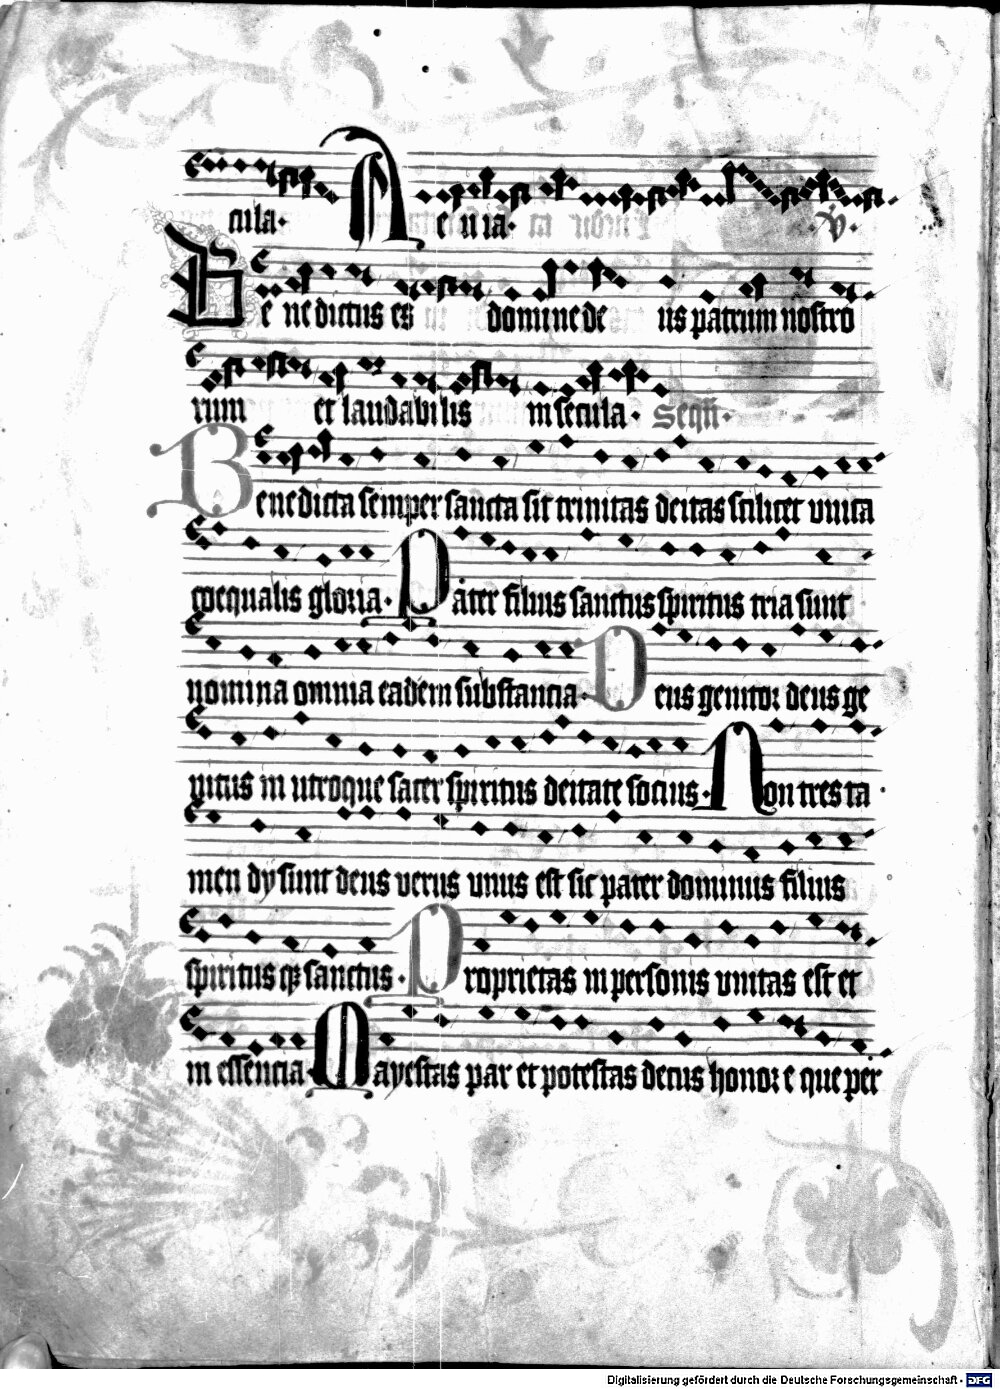 cula · Ae u ia · V ·
Be ne dictus es domine de us patrum nostro
rum et laudabilis in secula · Seqn ·
Benedicta semper sancta sit trinitas deitas scilicet vnita
coequalis gloria · Pater filius sanctus spiritus tria sunt
nomina omnia eadem substancia · Deus genitor deus ge
nitus in utroque sacer spiritus deitate socius · Non tres ta
men dy sunt deus verus unus est sic pater dominus filius
spiritus qz sanctus · Proprietas in personis vnitas est et
in essencia Mayestas par et potestas decus honor e que per
Digitalisierung gefördert durch die Deutsche Forschungsgemeinschaft - DFG